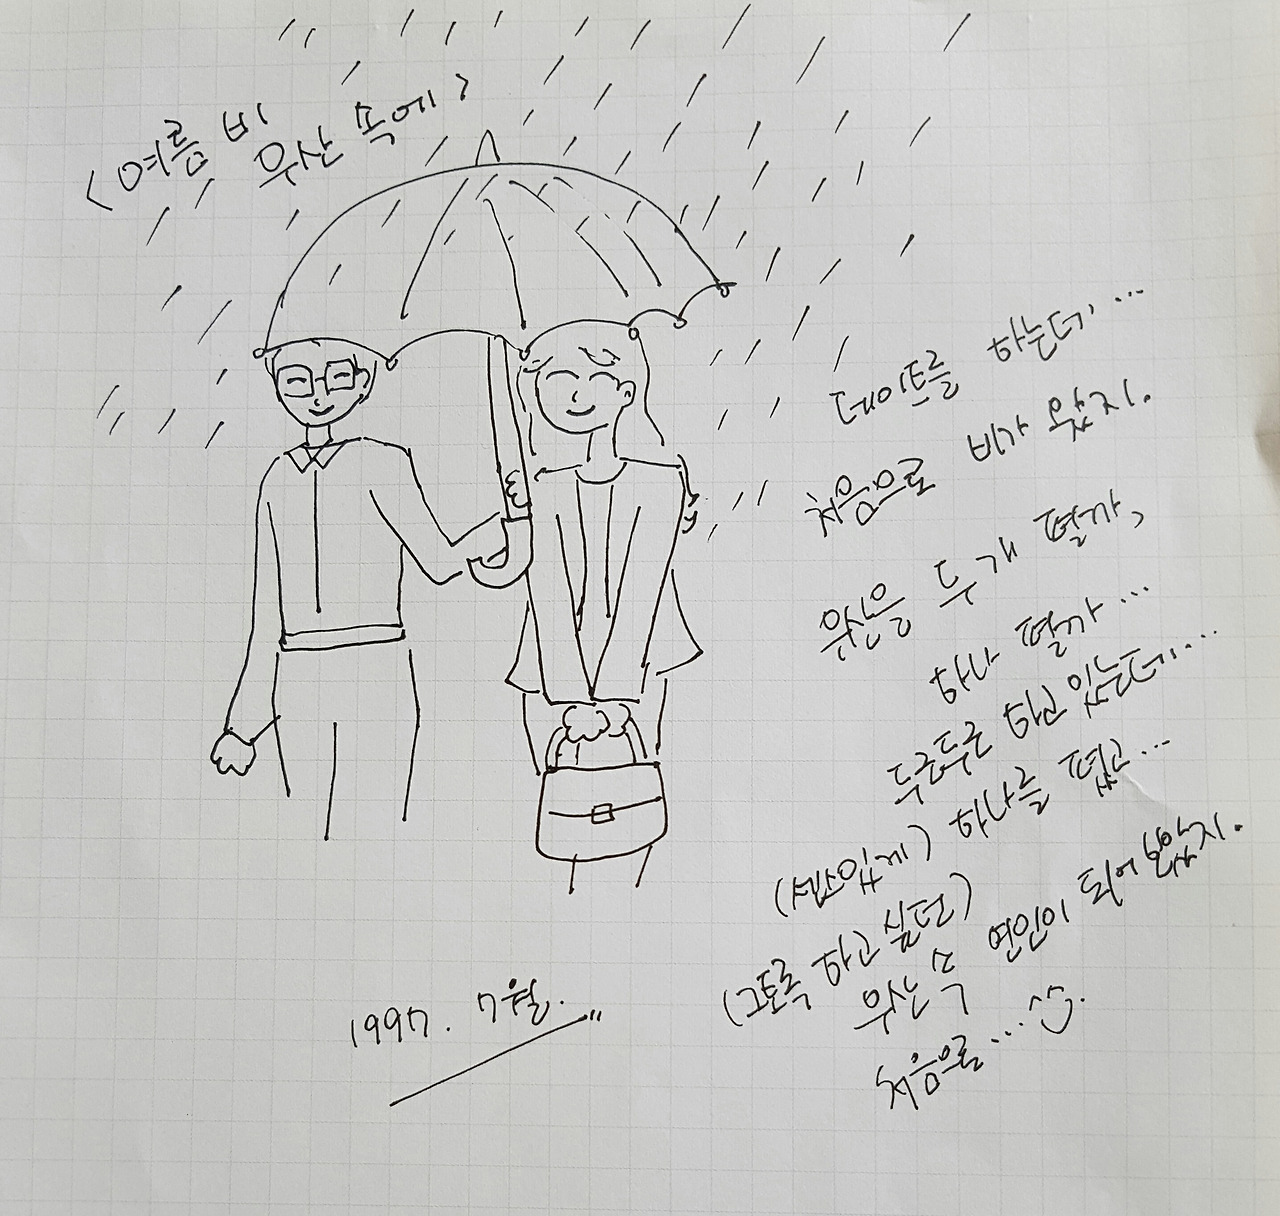 <여름 비
우산 속에>
데이트를 하는데…
처음으로 비가 왔지.
우산을 두 개 펼까,
하나 펼까…
두근두근 하고 있는데…
하나를 폈고…
(그토록 하고 싶던)
우산 속 연인이 되어 보았지.
처음으로… ^^.
1997. 7월.